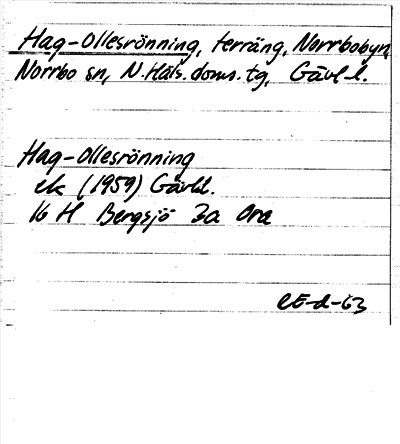 Hag-Ollesrönning, terräng, Norrbobyn,
Norrbo sn, N. Häls. doms. tg, Gävl. l.
Hag-Ollesrönning
ek (1959) Gävl.l.
16 H Bergsjö 3a Ora